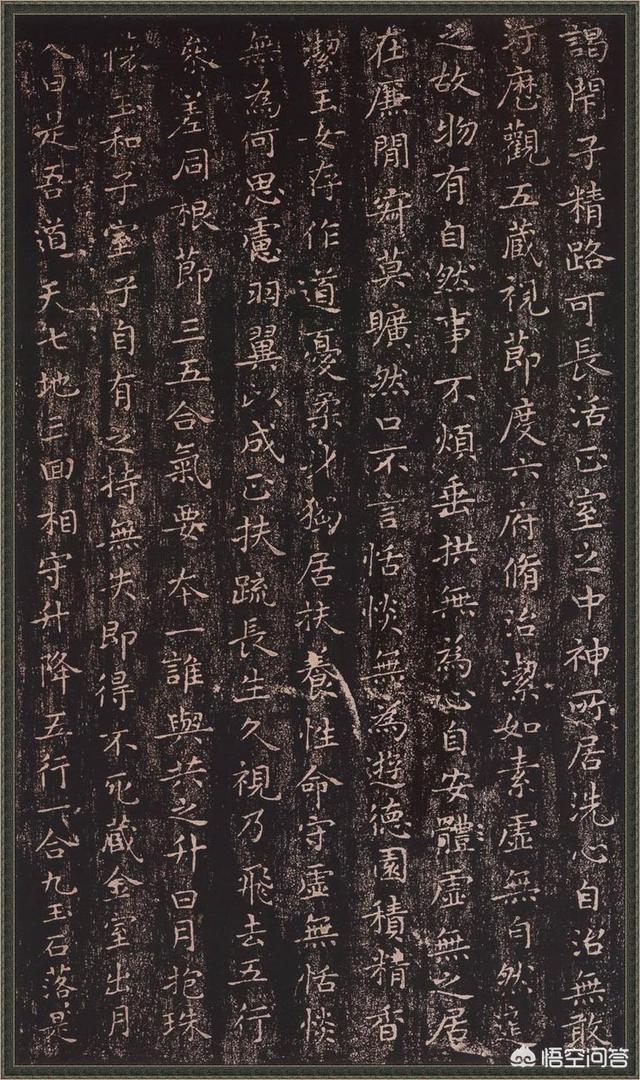 謁閇子精路可長活正室之中神所居洗心自治無敢
污歷觀五藏視節度六府脩治潔如素虛無自然道
之故物有自然事不煩垂拱無為心自安體虛無之居
在廉間寂莫曠然口不言恬惔無為遊德園積精香
潔玉女存作道憂柔身獨居扶養性命守虛無恬惔
無為何思慮羽翼以成正扶疏長生久視乃飛去五行
參差同根節三五合氣要本一誰與共之升日月抱珠
懷玉和子室子自有之持無失即得不死藏金室出月
入日是吾道天七地三回相守升降五行一合九玉石落〻是
悟空问答